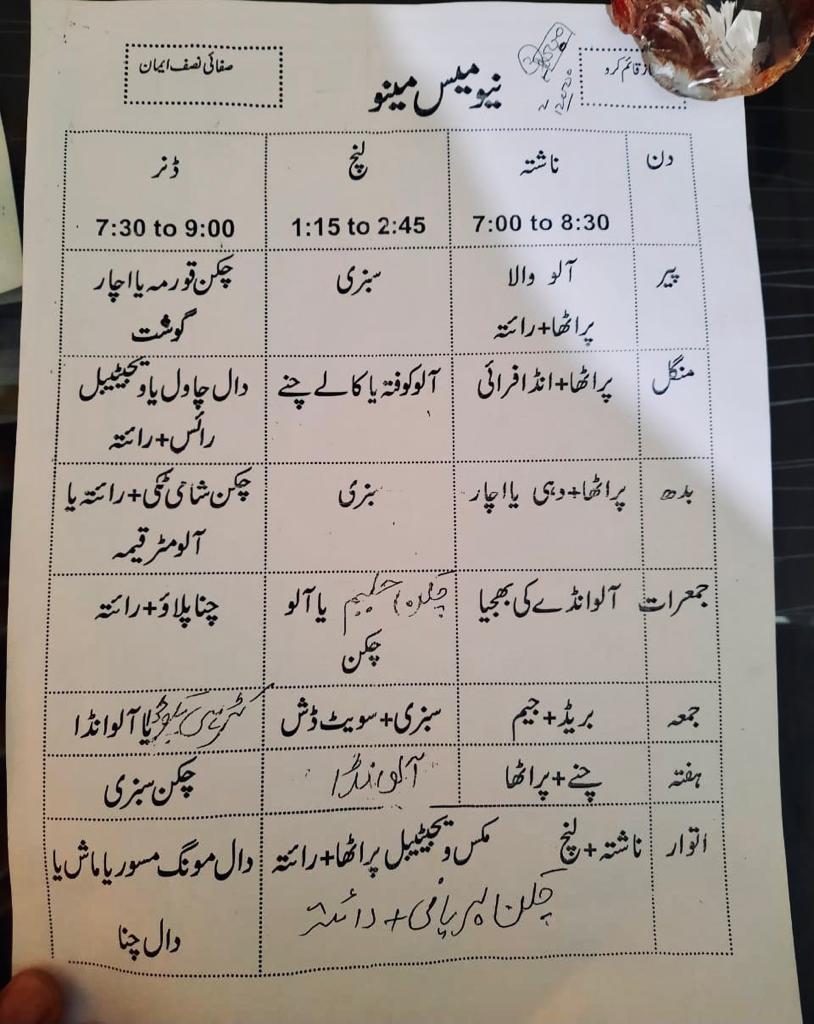 صفائی نصف ایمان
قائم کرو
نیو میس مینو
دن ناشتہ لنچ ڈنر
7:00 to 8:30 1:15 to 2:45 7:30 to 9:00
پیر آلو والا سبزی چکن قورمہ یا اچار
پراٹھا+رائتہ گوشت
منگل پراٹھا+انڈا فرائی آلو کوفتہ یا کالے چنے دال چاول یا ویجیٹیبل
رائس+رائتہ
بدھ پراٹھا+دہی یا اچار سبزی چکن شامی ٹکی+رائتہ یا
آلو مٹر قیمہ
جمعرات آلو انڈے کی بھجیا چکن حلیم یا آلو چنا پلاؤ+رائتہ
چکن
جمعہ بریڈ+جیم سبزی+سویٹ ڈش یا آلو انڈا
ہفتہ چنے+پراٹھا آلو انڈا چکن سبزی
اتوار ناشتہ+لنچ مکس ویجیٹیبل پراٹھا+رائتہ دال مونگ مسور یا ماش یا
چکن بریانی + رائتہ دال چنا